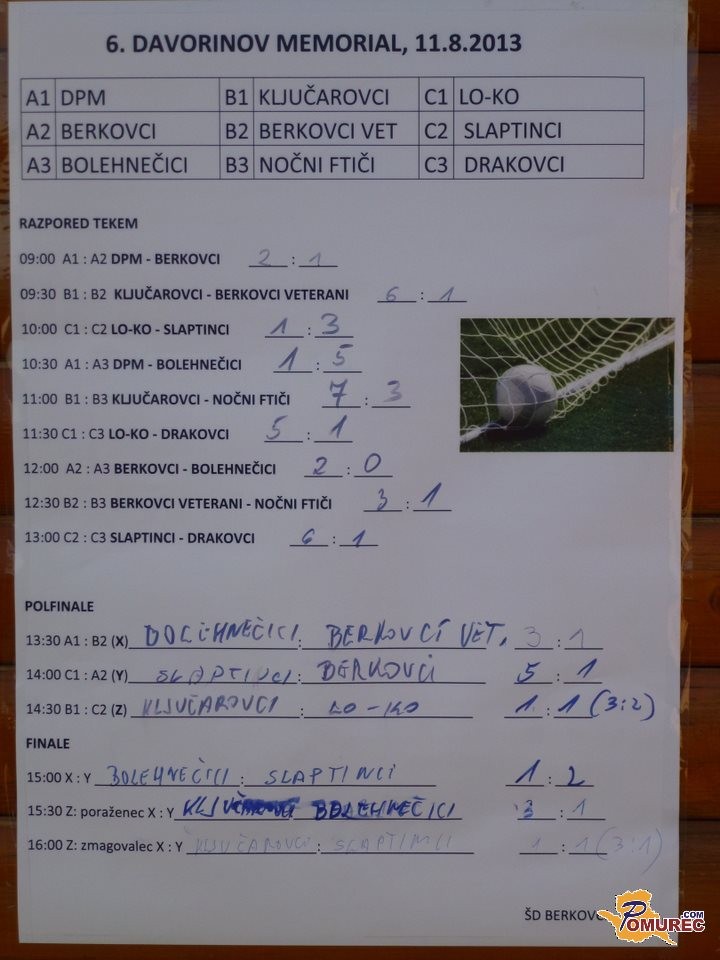 6. DAVORINOV MEMORIAL, 11.8.2013
A1 DPM B1 KLJUČAROVCI C1 LO-KO
A2 BERKOVCI B2 BERKOVCI VET C2 SLAPTINCI
A3 BOLEHNEČICI B3 NOČNI FTIČI C3 DRAKOVCI
RAZPORED TEKEM
09:00 A1 : A2 DPM - BERKOVCI 2 : 1
09:30 B1 : B2 KLJUČAROVCI - BERKOVCI VETERANI 6 : 1
10:00 C1 : C2 LO-KO - SLAPTINCI 1 : 3
10:30 A1 : A3 DPM - BOLEHNEČICI 1 : 5
11:00 B1 : B3 KLJUČAROVCI - NOČNI FTIČI 7 : 3
11:30 C1 : C3 LO-KO - DRAKOVCI 5 : 1
12:00 A2 : A3 BERKOVCI - BOLEHNEČICI 2 : 0
12:30 B2 : B3 BERKOVCI VETERANI - NOČNI FTIČI 3 : 1
13:00 C2 : C3 SLAPTINCI - DRAKOVCI 6 : 1
POLFINALE
13:30 A1 : B2 (X) BOLEHNEČICI : BERKOVCI VET. 3 : 1
14:00 C1 : A2 (Y) SLAPTINCI : BERKOVCI 5 : 1
14:30 B1 : C2 (Z) KLJUČAROVCI : LO-KO 1 : 1 (3:2)
FINALE
15:00 X : Y BOLEHNEČICI : SLAPTINCI 1 : 2
15:30 Z: poraženec X : Y BOLEHNEČICI 3 : 1
16:00 Z: zmagovalec X : Y KLJUČAROVCI : SLAPTINCI 1 : 1 (3:1)
ŠD BERKOVC
POMUREC.COM